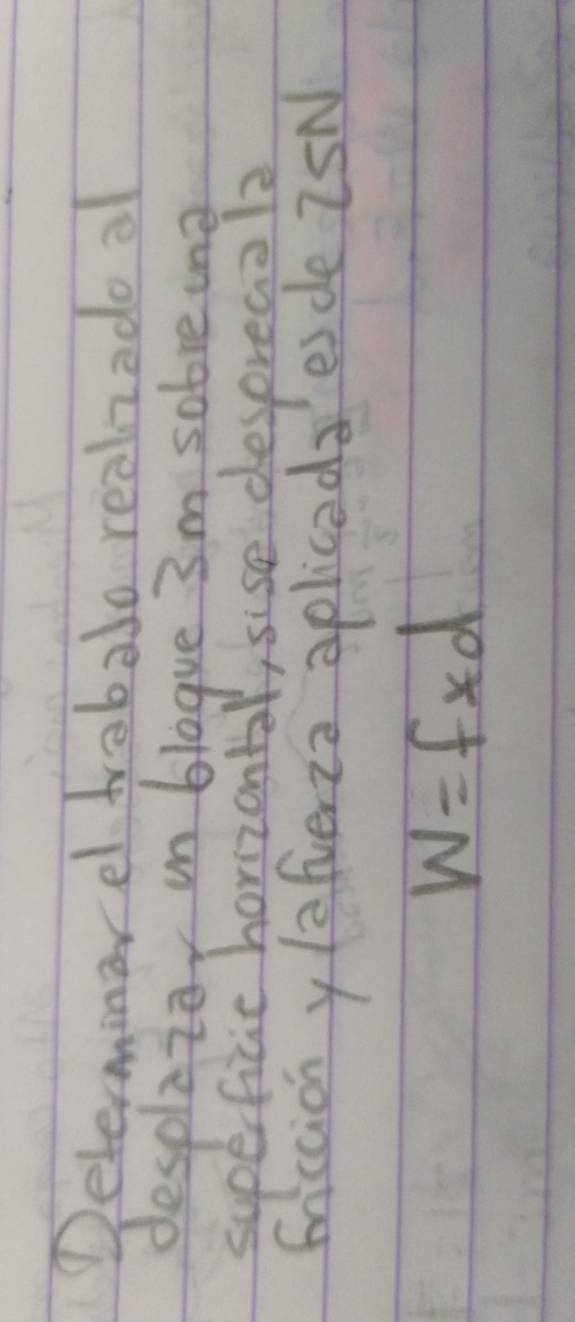 Determinar el trabajo realizado al
desplazar un bloque 3m sobre una
superficie horizontal, si se desprecia la
fricción y la fuerza aplicada es de 25N
W=fxd